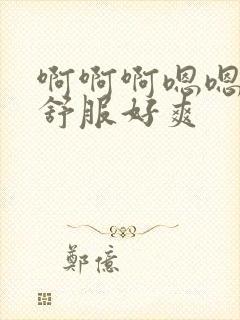 啊啊啊嗯嗯
舒服好爽
鄭億